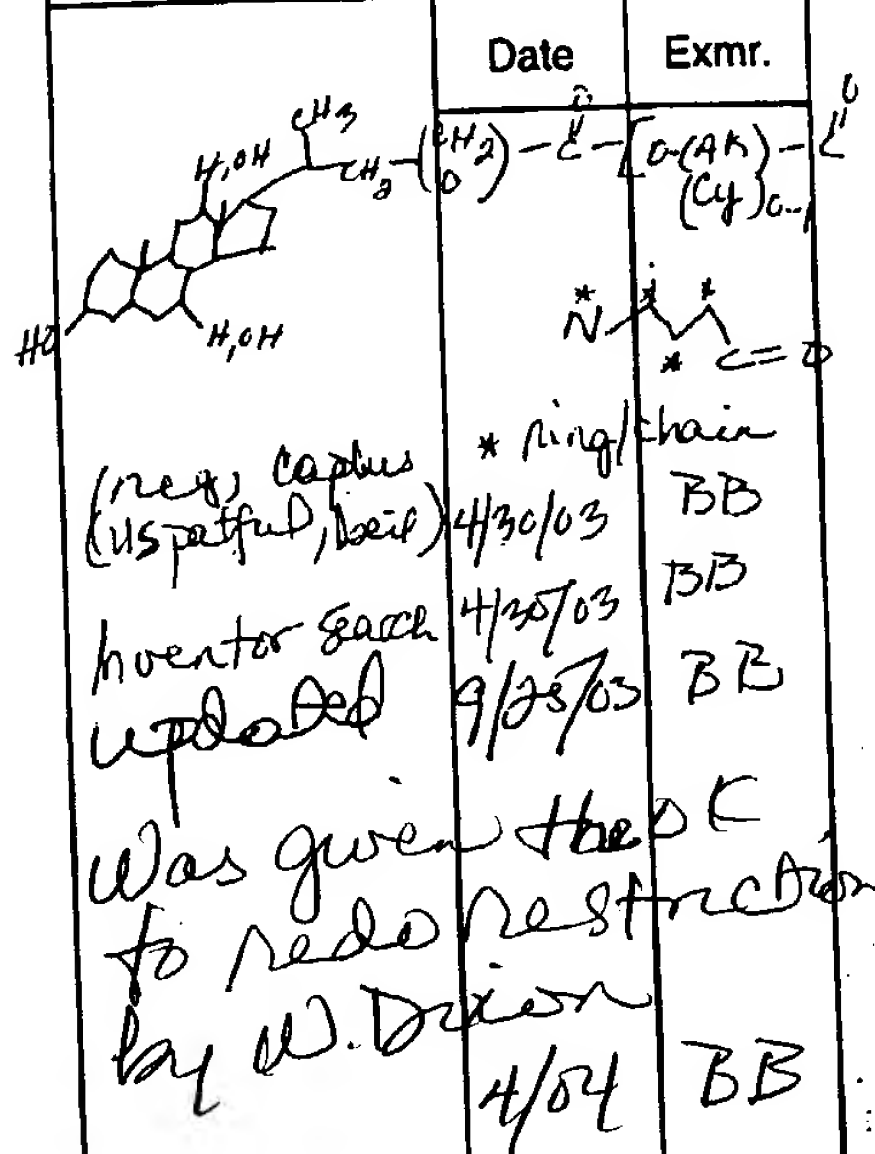 Date Exmr.
CH3
O O
H,OH CH2-(CH2)-C-[O-(AK)-C
O (Cy)0-1
N* * *
HO H,OH * C=O
* ring/chain
(reg, caplus BB
(uspatful, beil) 4/30/03
Inventor search 4/30/03 BB
updated 9/25/03 BB
Was given the OK
to redo restriction
by W. Dixon
4/04 BB